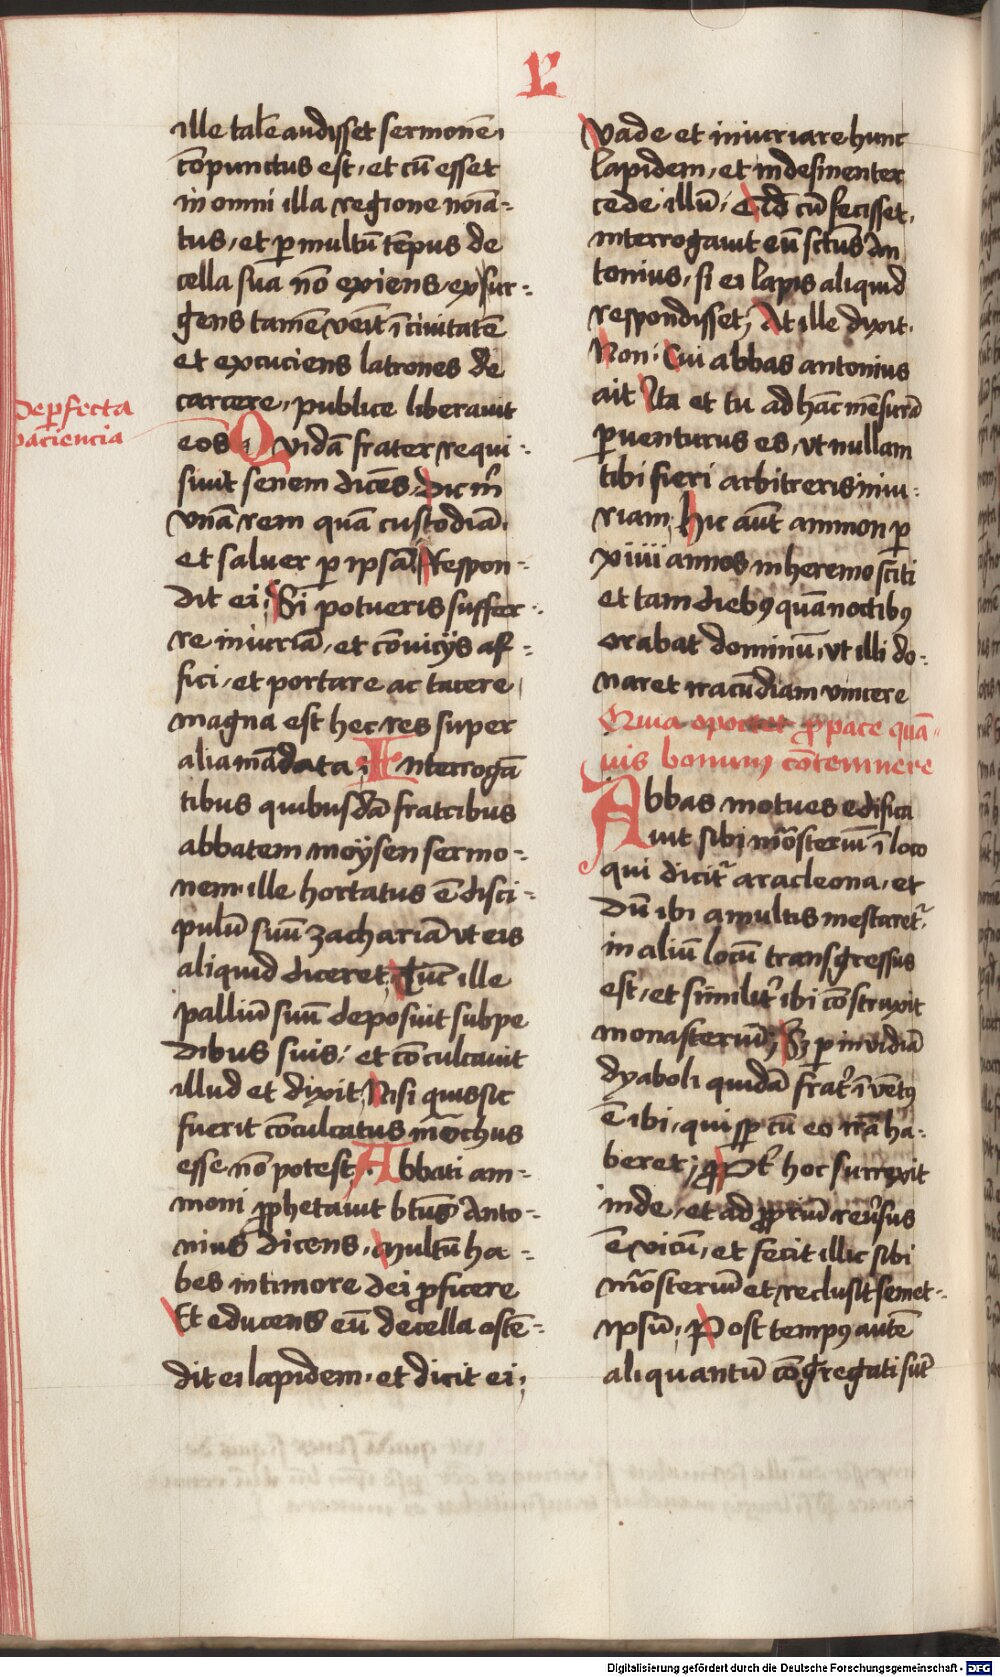 r
ille tale audisset sermonē
cōpunctus est, et cū esset
in omni illa regione noīa-
tus, et p multū tēpus de
cella sua nō exiens, exsur-
gens tamē venit ī ciuitatē
et excuciens latrones de
carcere, publice liberauit
De pfecta
paciencia
eos Quidā frater requi-
siuit senem dicēs, dic m̄
vnā rem quā custodiā,
et saluer p ipsā, Respon-
dit ei, Si potueris suffer-
re iniuriā, et conuicijs af-
fici, et portare ac tacere
magna est hec res super
alia mādata, Interrogā
tibus quibusdā fratribus
abbatem moÿsen sermo-
nem, ille hortatus ē disci-
pulū suū zachariā vt eis
aliquid diceret, Tūc ille
palliū suū deposuit sub pe
dibus suis, et cōculcauit
illud et dixit, Nisi quis sic
fuerit cōculcatus mōchus
esse nō potest, Abbati am-
moni pphetauit btūs Anto-
nius dicens, multū ha-
bes in timore dei pficere
Et educens eū de cella ostē-
dit ei lapidem, et dicit ei,
Vade et iniuriare hunc
lapidem, et indesinenter
cede illū, Qd cū fecisset,
interrogauit eū sctūs An
tonius, si ei lapis aliquid
respondisset, At ille dixit.
Non. Cui abbas antonius
ait Ita et tu ad hāc mēsurā
puenturus es, vt nullam
tibi fieri arbitreris iniu-
riam, hic aūt ammon p
xiiii annos in heremo sciti
et tam diebꝯ quā noctibꝯ
orabat dominū, vt illi do-
naret iracūdiam vincere
Quia oportet p pace quā-
uis bonum cōtemnere
Abbas motues edifica
uit sibi mōsteriū ī loco
qui dicit aracleona, et
dū ibi a multis mestaret
in aliū locū transgressus
est, et similit ibi cōstruxit
monasteriū, Sꝫ p inuidiā
dyaboli quidā frat īventꝯ
ē ibi, qui sp cū eo irā ha-
beret, qi pt hoc surrexit
inde, et ad ppriū reuersus
ē vicū, et fecit illic sibi
mōsteriū et reclusit semet-
ipsū, Post tempꝯ autē
aliquantū cōgregati sūt
Digitalisierung gefördert durch die Deutsche Forschungsgemeinschaft - DFG